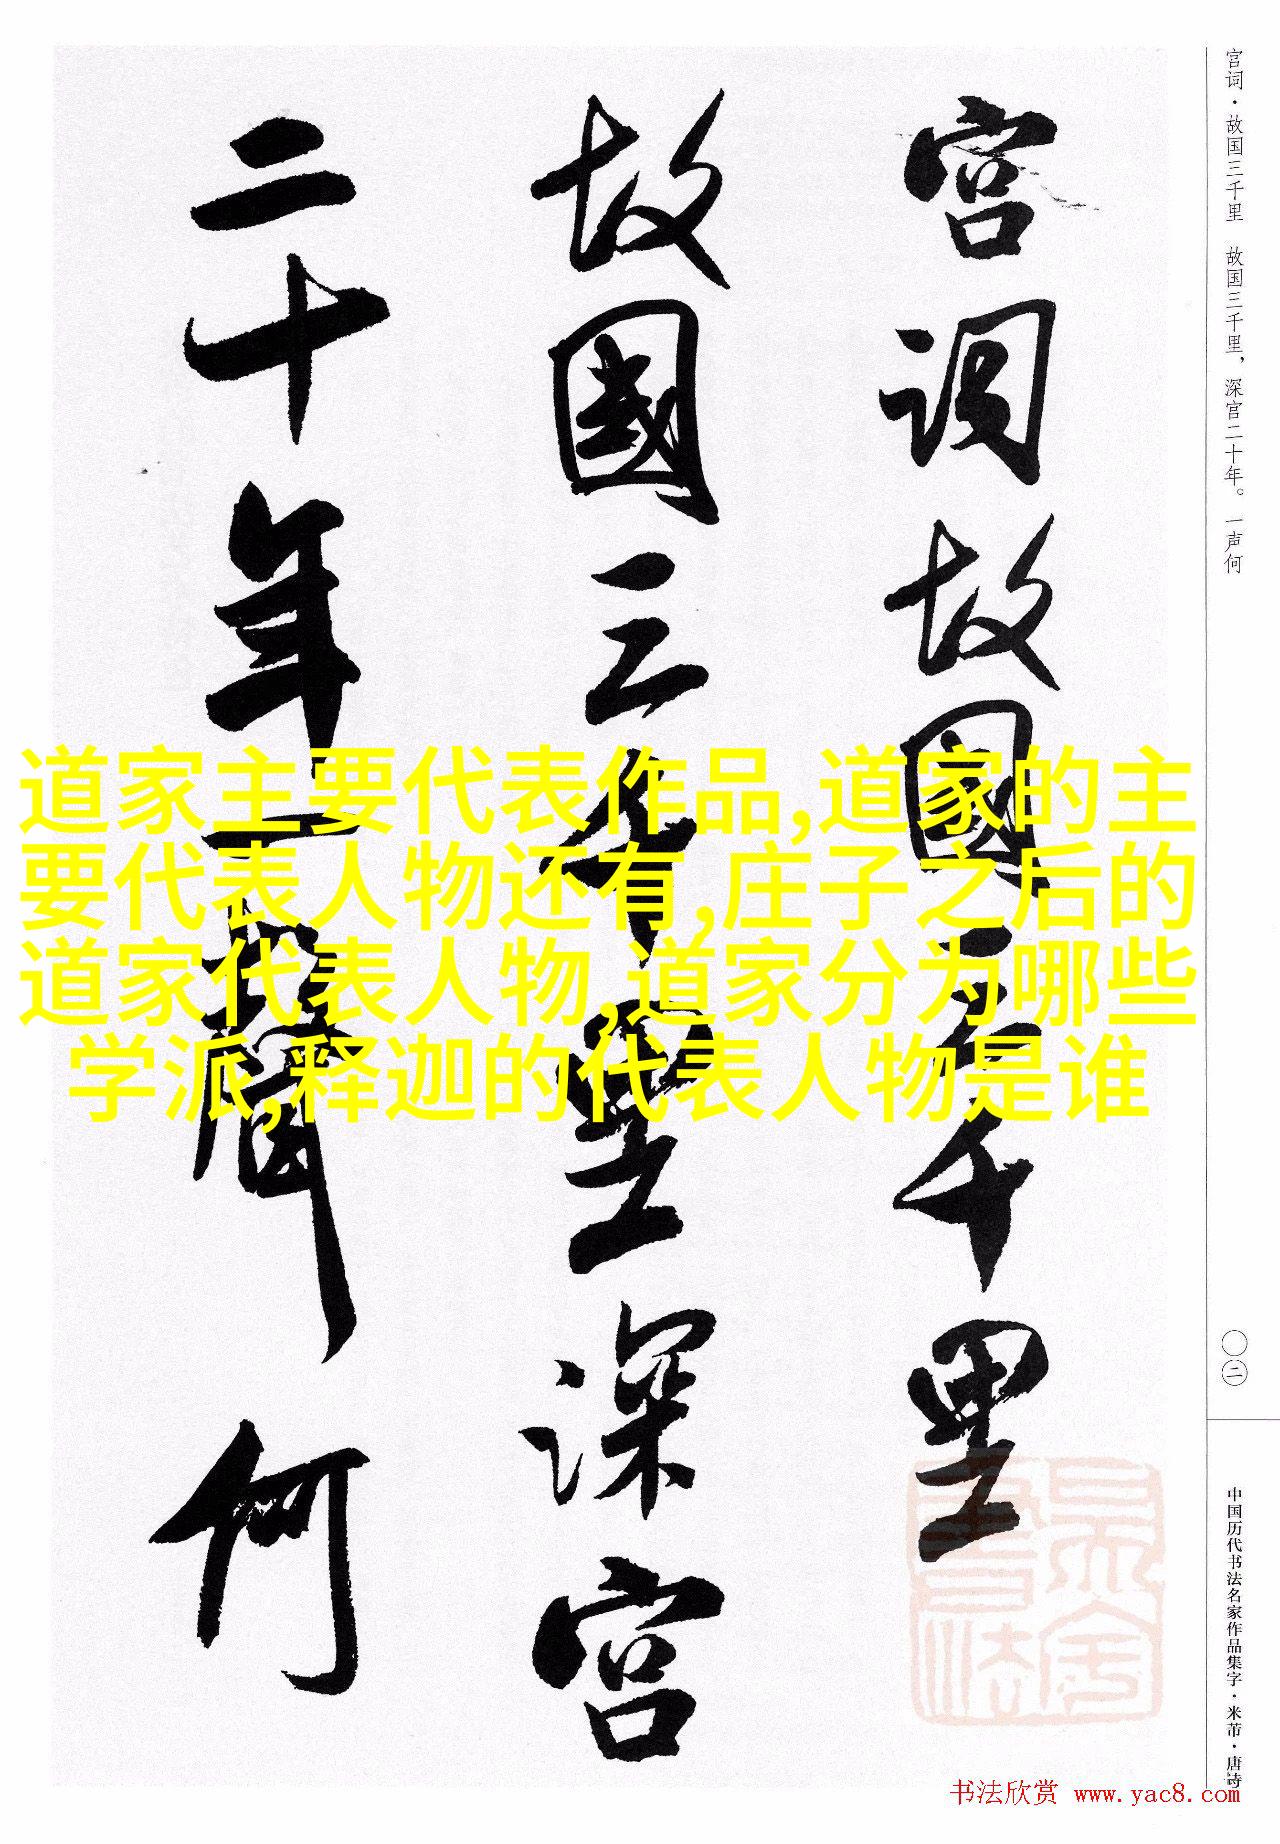 宫词·故国三千里 故国三千里，深宫二十年。一声何
宫词故國三千里
故國三千里深宫
二十年一聲何
道家主要代表作品,道家的主
要代表人物还有,庄子之后的
道家代表人物,道家分为哪些
学派,释迦的代表人物是谁
〇二
中国历代书法名家作品集字·米芾·唐诗
书法欣赏 www.yac8.com